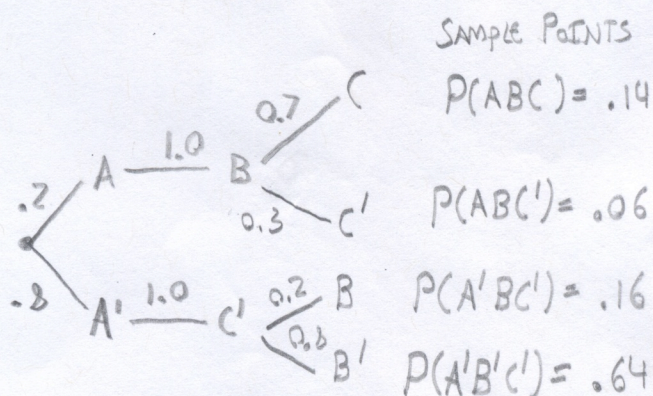 SAMPLE POINTS
0.7 C P(ABC) = .14
.2 A 1.0 B
0.3 C' P(ABC') = .06
.8 A' 1.0 C' 0.2 B P(A'BC') = .16
0.8 B' P(A'B'C') = .64